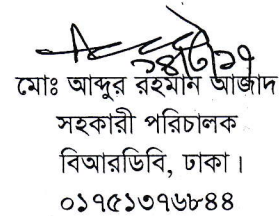 মোঃ আব্দুর রহমান আজাদ
সহকারী পরিচালক
বিআরডিবি, ঢাকা।
০১৭৫১৩৭৬৮৪৪